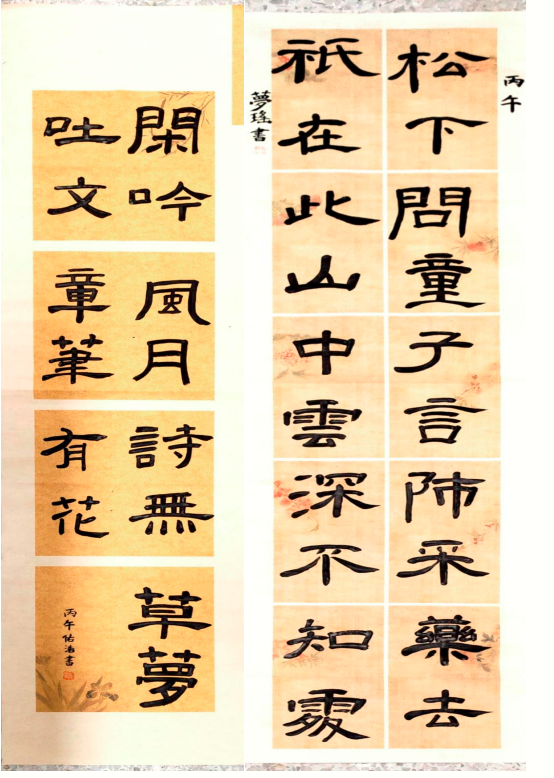 丙午
松下問童子言師采藥去
祇在此山中雲深不知處
夢瑤書
閑吟風月詩無草夢
吐文章筆有花
丙午佑書